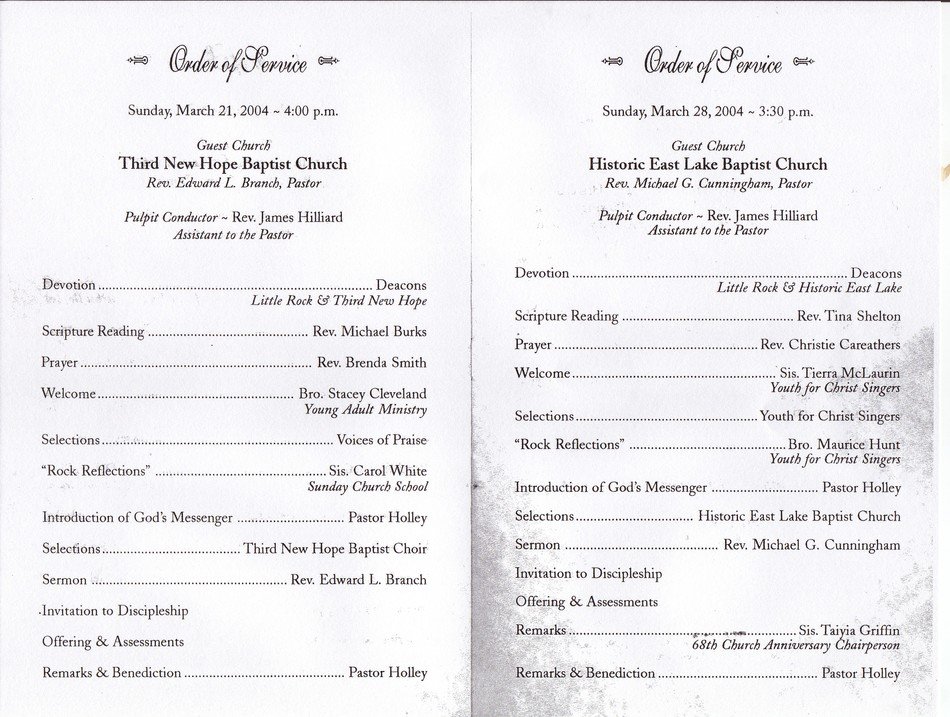 Order of Service
Sunday, March 21, 2004 ~ 4:00 p.m.
Guest Church
Third New Hope Baptist Church
Rev. Edward L. Branch, Pastor
Pulpit Conductor ~ Rev. James Hilliard
Assistant to the Pastor
Devotion ........ Deacons
Little Rock & Third New Hope
Scripture Reading ........ Rev. Michael Burks
Prayer ........ Rev. Brenda Smith
Welcome ........ Bro. Stacey Cleveland
Young Adult Ministry
Selections ........ Voices of Praise
“Rock Reflections” ........ Sis. Carol White
Sunday Church School
Introduction of God’s Messenger ........ Pastor Holley
Selections ........ Third New Hope Baptist Choir
Sermon ........ Rev. Edward L. Branch
Invitation to Discipleship
Offering & Assessments
Remarks & Benediction ........ Pastor Holley
Order of Service
Sunday, March 28, 2004 ~ 3:30 p.m.
Guest Church
Historic East Lake Baptist Church
Rev. Michael G. Cunningham, Pastor
Pulpit Conductor ~ Rev. James Hilliard
Assistant to the Pastor
Devotion ........ Deacons
Little Rock & Historic East Lake
Scripture Reading ........ Rev. Tina Shelton
Prayer ........ Rev. Christie Careathers
Welcome ........ Sis. Tierra McLaurin
Youth for Christ Singers
Selections ........ Youth for Christ Singers
“Rock Reflections” ........ Bro. Maurice Hunt
Youth for Christ Singers
Introduction of God’s Messenger ........ Pastor Holley
Selections ........ Historic East Lake Baptist Church
Sermon ........ Rev. Michael G. Cunningham
Invitation to Discipleship
Offering & Assessments
Remarks ........ Sis. Taiyia Griffin
68th Church Anniversary Chairperson
Remarks & Benediction ........ Pastor Holley